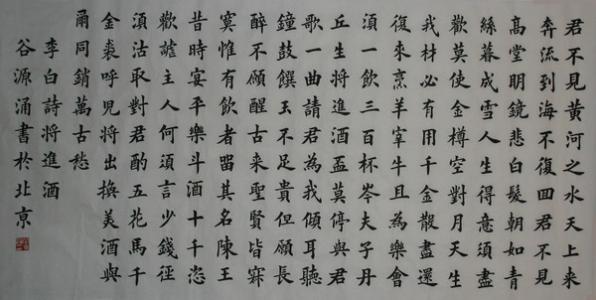 君不見黄河之水天上来
奔流到海不復回君不見
高堂明鏡悲白髮朝如青
絲暮成雪人生得意須盡
歡莫使金樽空對月天生
我材必有用千金散盡還
復來烹羊宰牛且為樂會
須一飲三百杯岑夫子丹
丘生将進酒盃莫停與君
歌一曲請君為我傾耳聽
鐘鼓饌玉不足貴但願長
醉不願醒古来聖賢皆寂
寞惟有飲者留其名陳王
昔時宴平樂斗酒十千恣
歡謔主人何須言少錢徑
須沽取對君酌五花馬千
金裘呼兒将出換美酒與
爾同銷萬古愁
李白詩将進酒
谷源涌書於北京